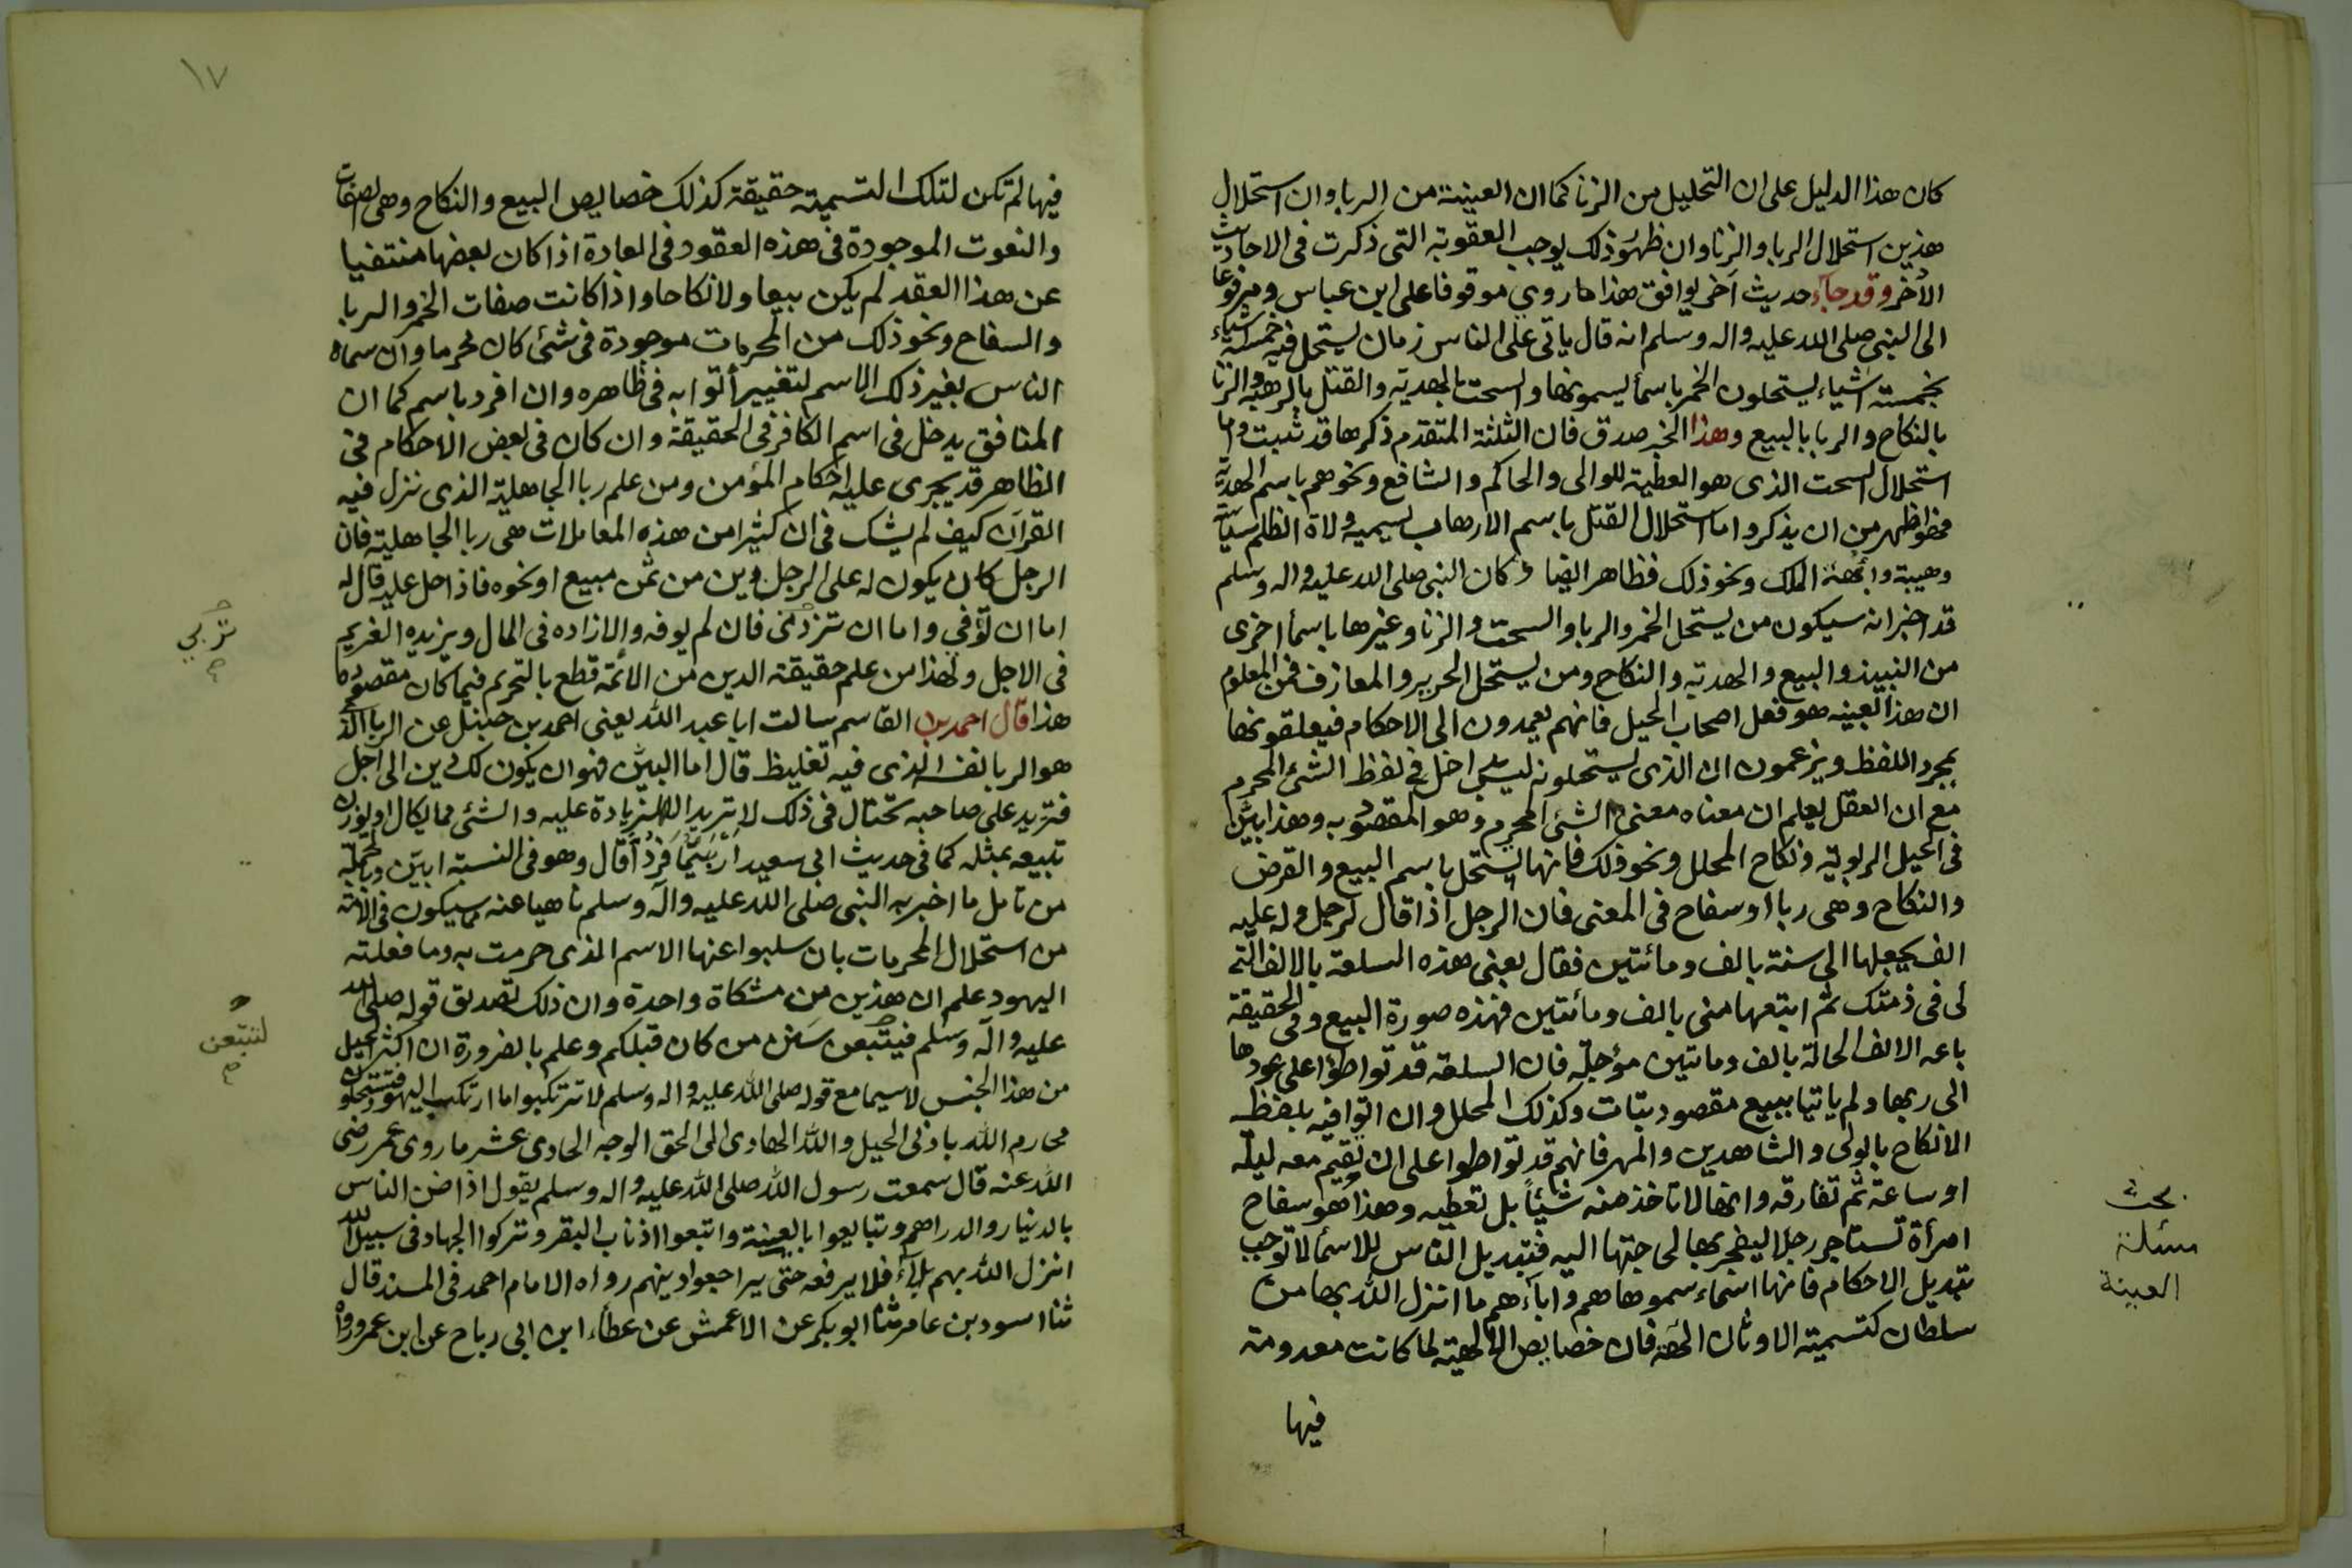 كان هذا الدليل على ان التحليل من الزنا كما ان العينة من الربا وان استحلال
هذين استحلال الربا والزنا وان ظهور ذلك يوجب العقوبة التى ذكرت فى الاحاديث
الأخر وقد جآء حديث آخر يوافق هذا ما روي موقوفا على ابن عباس ومرفوعا
الى النبى صلى الله عليه واله وسلم انه قال ياتى على الناس زمان يستحل فيه خمسة اشياء
بخمسة اشياء يستحلون الخمر باسمآ يسمونها والسحت بالهدية والقتل بالرهبة والزنا
بالنكاح والربا بالبيع وهذا الخبر صدق فان الثلثة المتقدم ذكرها قد ثبت واما
استحلال السحت الذى هو العطية للوالى والحاكم والشافع ونحوهم باسم الهدية
فهو اظهر من ان يذكر واما استحلال القتل باسم الارهاب يسميه ولاة الظلم سياسة
وهيبة وابهة الملك ونحو ذلك فظاهر ايضا وكان النبى صلى الله عليه واله وسلم
قد اخبر انه سيكون من يستحل الخمر والربا والسحت والزنا وغيرها باسمآ اخرى
من النبيذ والبيع والهدية والنكاح ومن يستحل الحرير والمعازف فمن المعلوم
ان هذا بعينه هو فعل اصحاب الحيل فانهم يعمدون الى الاحكام فيعلقونها
بمجرد اللفظ ويزعمون ان الذى يستحلونه ليس بداخل فى لفظ الشئ المحرم
مع ان العقل يعلم ان معناه معنى الشئ المحرم وهو المقصود به وهذا بيّن
فى الحيل الربوية ونكاح المحلل ونحو ذلك فانها يستحل باسم البيع والقرض
والنكاح وهى ربا او سفاح فى المعنى فان الرجل اذا قال لرجل وله عليه
الف يجعلها الى سنة بالف ومائتين فقال بعنى هذه السلعة بالالف التى
لى فى ذمتك ثم ابتعها منى بالف ومائتين فهذه صورة البيع وفى الحقيقة
باعه الالف الحالة بالف ومائتين مؤجلة فان السلعة قد تواطؤا على عودها
الى ربها ولم ياتيا ببيع مقصود بتات وكذلك المحلل وان اتوا فيه بلفظ
الانكاح بالولى والشاهدين والمهر فانهم قد تواطوا على ان تقيم معه ليلة
او ساعة ثم تفارقه وانها لا تاخذ منه شيئاً بل تعطيه وهذا هو سفاح
امرأة تستاجر رجلا ليفجر بها لحاجتها اليه فتبديل الناس للاسمآ لا توجب
تبديل الاحكام فانها اسماء سموها هم وابآءهم ما انزل الله بها من
سلطان كتسمية الاوثان الهة فان خصايص الالهية لما كانت معدومة
فيها
بحث
مسئلة
العينة
١٧
فيها لم تكن لتلك التسمية حقيقة كذلك خصايص البيع والنكاح وهى الصفات
والنعوت الموجودة فى هذه العقود فى العادة اذا كان بعضها منتفيا
عن هذا العقد لم يكن بيعا ولا نكاحا واذا كانت صفات الخمر والربا
والسفاح ونحو ذلك من المحرمات موجودة فى شئ كان محرما وان سماه
الناس بغير ذلك الاسم لتغيير أتوا به فى ظاهره وان افرد باسم كما ان
المنافق يدخل فى اسم الكافر فى الحقيقة وان كان فى بعض الاحكام فى
الظاهر قد يجرى عليه احكام المؤمن ومن علم ربا الجاهلية الذى نزل فيه
القرآن كيف لم يشك فى ان كثيرا من هذه المعاملات هى ربا الجاهلية فان
الرجل كان يكون له على الرجل دين من ثمن مبيع او نحوه فاذا حل عليه قال له
اما ان توفي واما ان تزدنى فان لم يوفه والا زاده فى المال ويزيده الغريم
فى الاجل ولهذا من علم حقيقة الدين من الائمة قطع بالتحريم فيما كان مقصوده
هذا قال احمد بن القاسم سالت ابا عبد الله يعنى احمد بن حنبل عن الربا الذى
هو الربا نفسه الذى فيه تغليظ قال اما البيّن فهو ان يكون لك دين الى اجل
فتزيد على صاحبه تحتال فى ذلك لا تريد الا الزيادة عليه والشئ مما يكال او يوزن
تبيعه بمثله كما فى حديث ابى سعيد أربيتما فردّا قال وهو فى النسية ابيّن وبالجملة
من تامل ما اخبر به النبى صلى الله عليه وآله وسلم ناهيا عنه مما سيكون فى الامة
من استحلال المحرمات بان سلبوا عنها الاسم الذى حرمت به وما فعلته
اليهود علم ان هذين من مشكاة واحدة وان ذلك تصديق قوله صلى الله
عليه وآله وسلم فيتبعن سنن من كان قبلكم وعلم بالضرورة ان اكثر الحيل
من هذا الجنس لاسيما مع قوله صلى الله عليه واله وسلم لا ترتكبوا ما ارتكب اليهود فتستحلون
محارم الله بادنى الحيل والله الهادى الى الحق الوجه الحادى عشر ما روى عمر رضى
الله عنه قال سمعت رسول الله صلى الله عليه واله وسلم يقول اذا ضن الناس
بالدينار والدراهم وتبايعوا بالعينة واتبعوا اذناب البقر وتركوا الجهاد فى سبيل الله
انزل الله بهم بلآء فلا يرفعه حتى يراجعوا دينهم رواه الامام احمد فى المسند قال
ثنا اسود بن عامر ثنا ابو بكر عن الاعمش عن عطاء ابن ابى رباح عن ابن عمر ورواه
تربي
لتتبعن